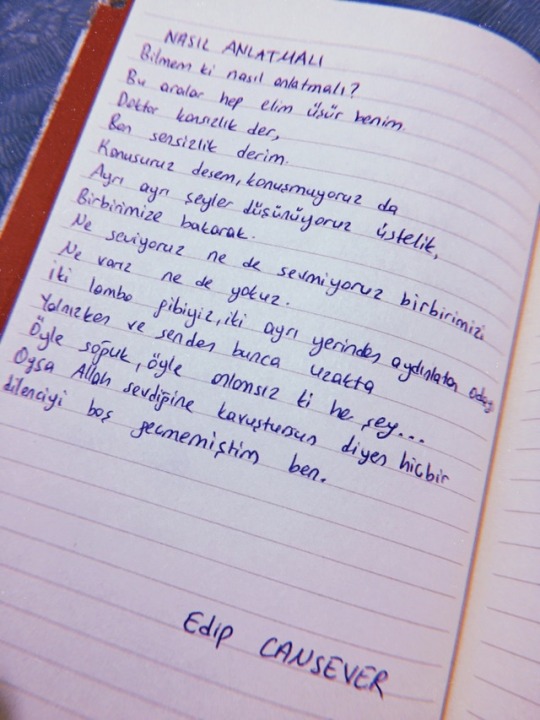 NASIL ANLATMALI
Bilmem ki nasıl anlatmalı?
Bu aralar hep elim üşür benim.
Doktor kansızlık der,
Ben sensizlik derim.
Konuşuruz desem, konuşmuyoruz da
Ayrı ayrı şeyler düşünüyoruz üstelik,
Birbirimize bakarak.
Ne seviyoruz ne de sevmiyoruz birbirimizi
Ne varız ne de yokuz.
İki lamba gibiyiz, iki ayrı yerinden aydınlatan odayı
Yalnızken ve senden bunca uzakta
Öyle soğuk, öyle anlamsız ki her şey...
Oysa Allah sevdiğine kavuştursun diyen hiçbir
dilenciyi boş geçmemiştim ben.
Edip CANSEVER